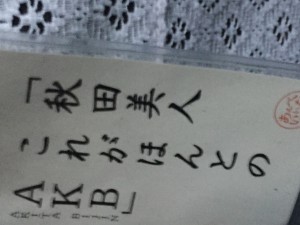 「秋田美人
これがほんとの
AKB」
AKITA BIJIN